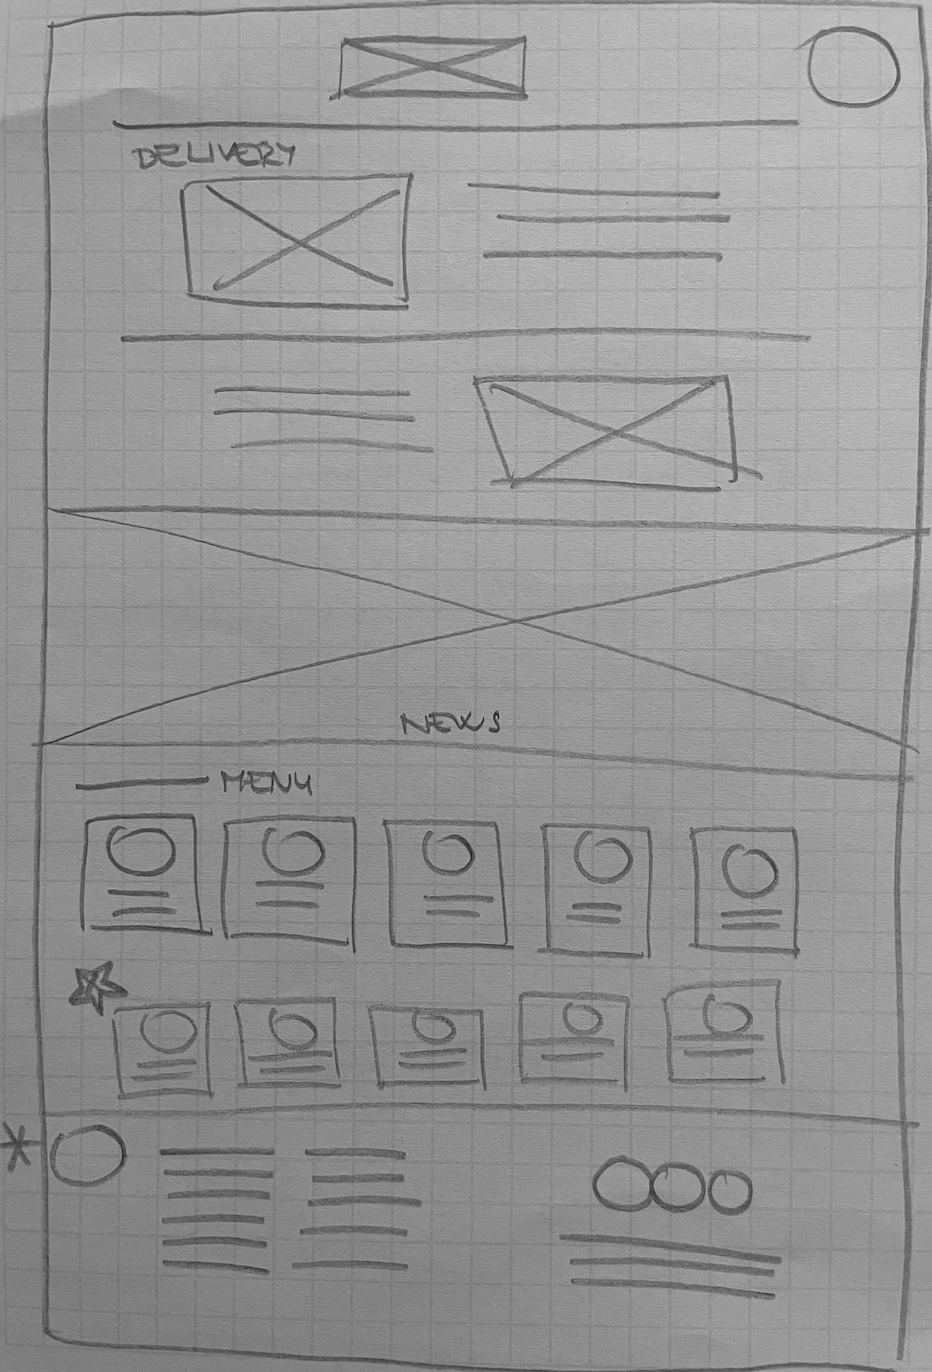 DELIVERY
NEWS
MENU